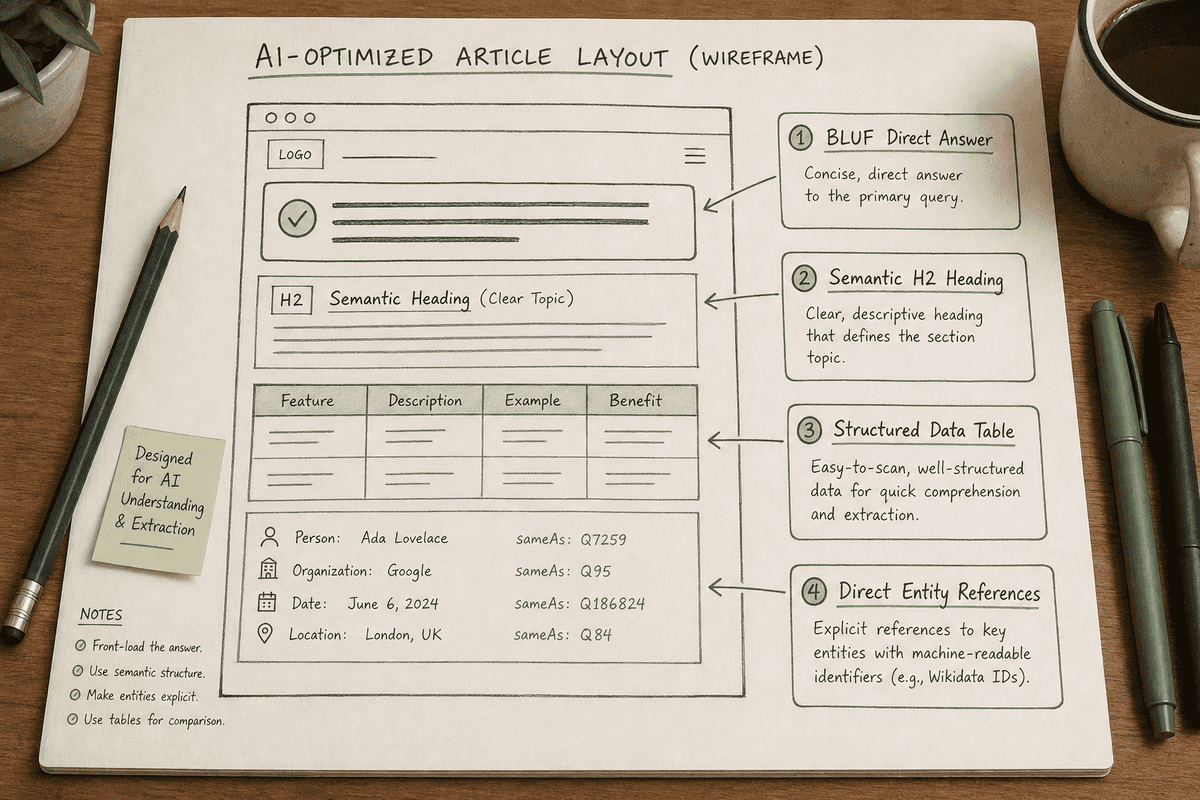 AI-OPTIMIZED ARTICLE LAYOUT (WIREFRAME)
LOGO
H2 Semantic Heading (Clear Topic)
Feature Description Example Benefit
Person: Ada Lovelace sameAs: Q7259
Organization: Google sameAs: Q95
Date: June 6, 2024 sameAs: Q186824
Location: London, UK sameAs: Q84
1 BLUF Direct Answer
Concise, direct answer
to the primary query.
2 Semantic H2 Heading
Clear, descriptive heading
that defines the section
topic.
3 Structured Data Table
Easy-to-scan, well-structured
data for quick comprehension
and extraction.
4 Direct Entity References
Explicit references to key
entities with machine-readable
identifiers (e.g., Wikidata IDs).
Designed
for AI
Understanding
& Extraction
NOTES
Front-load the answer.
Use semantic structure.
Make entities explicit.
Use tables for comparison.